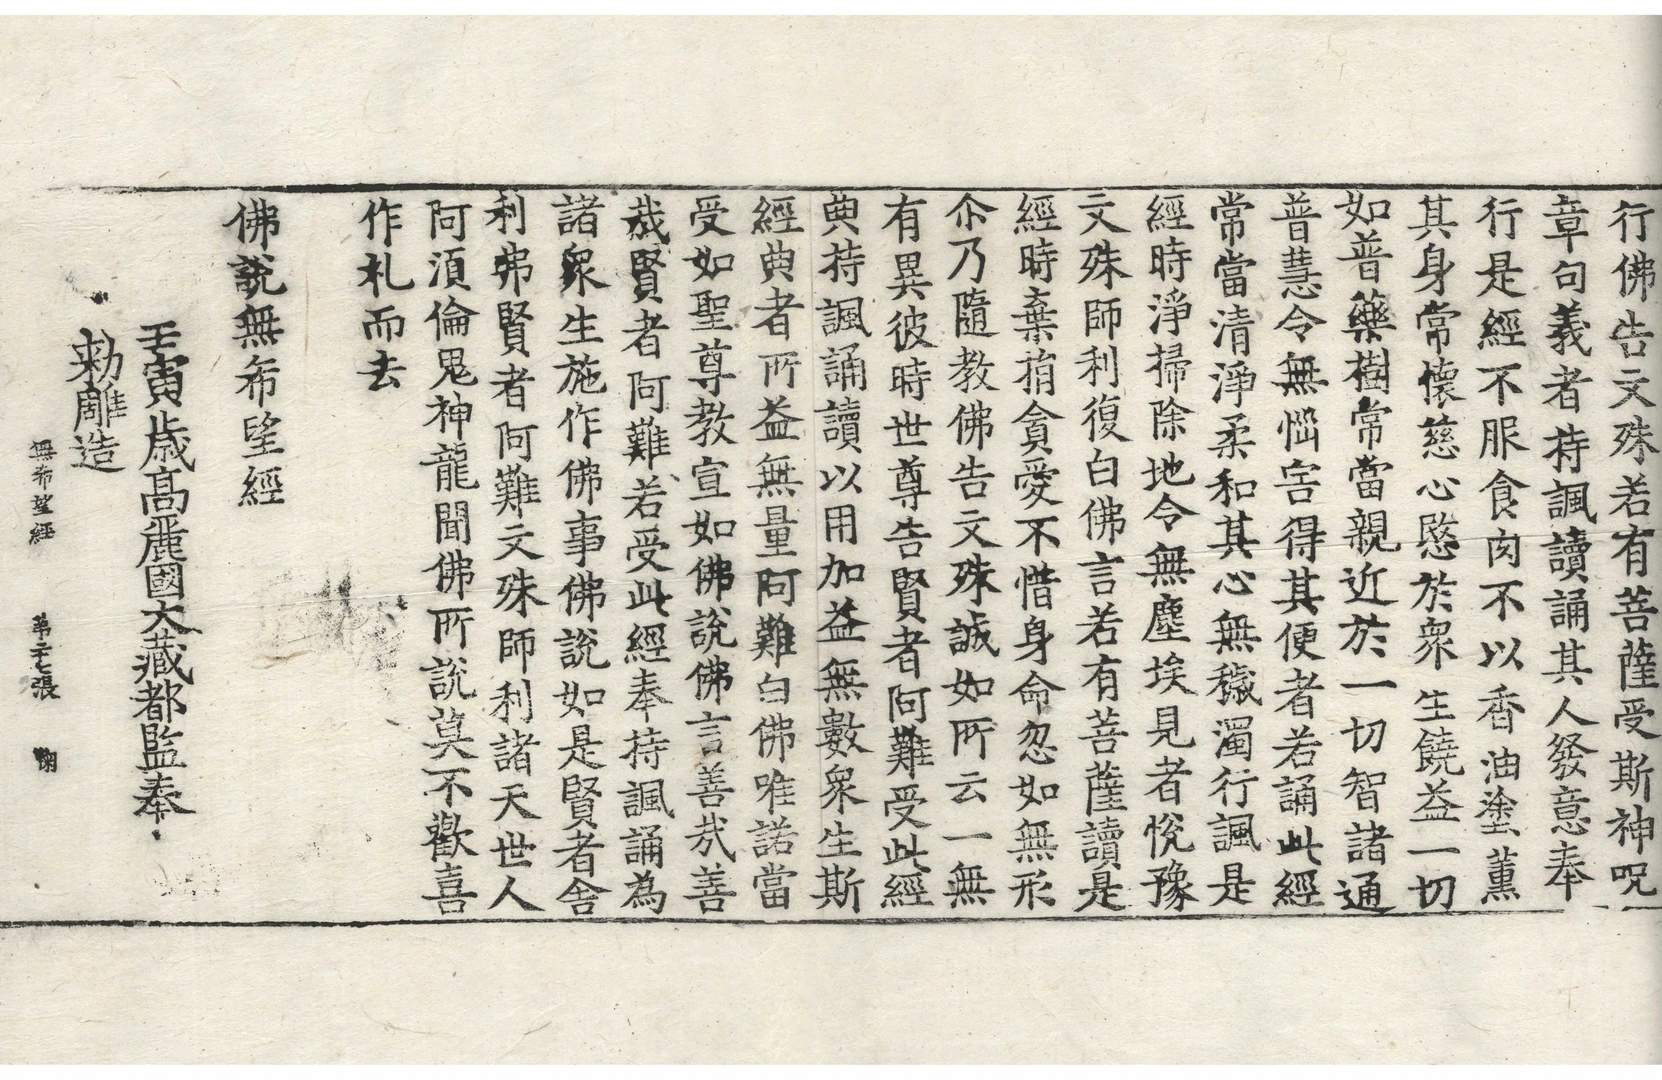 行佛告文殊若有菩薩受斯神呪
章句義者持諷讀誦其人發意奉
行是經不服食肉不以香油塗薰
其身常懷慈心愍於衆生饒益一切
如普藥樹常當親近於一切智諸通
普慧令無惱害得其便者若誦此經
常當清淨柔和其心無穢濁行諷是
經時淨掃除地令無塵埃見者悅豫
文殊師利復白佛言若有菩薩讀是
經時棄捐貪愛不惜身命忽如無形
尒乃隨教佛告文殊誠如所云一無
有異彼時世尊告賢者阿難受此經
典持諷誦讀以用加益無數衆生斯
經典者所益無量阿難白佛唯諾當
受如聖尊教宣如佛說佛言善哉善
哉賢者阿難若受此經奉持諷誦為
諸衆生施作佛事佛說如是賢者舍
利弗賢者阿難文殊師利諸天世人
阿須倫鬼神龍聞佛所說莫不歡喜
作礼而去
佛說無希望經
壬寅歲高麗國大藏都監奉
勑雕造
無希望經 第二七張 鞠